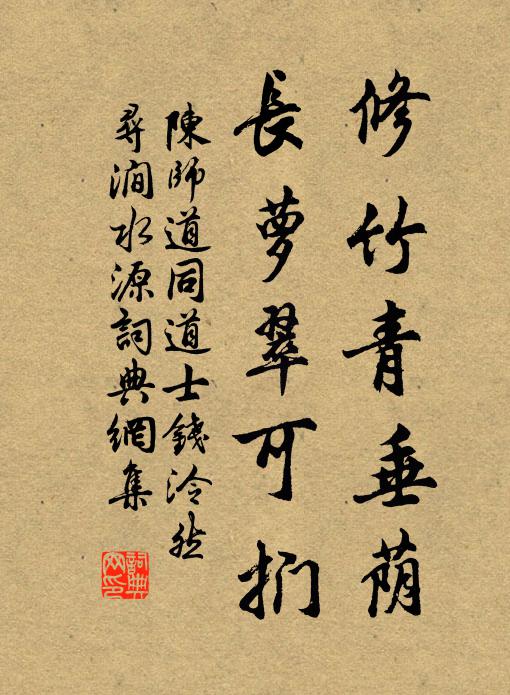 修竹青垂荫
長萝翠可捫
陳師道同道士錢泠然
尋澗水源詞典網集
詞典